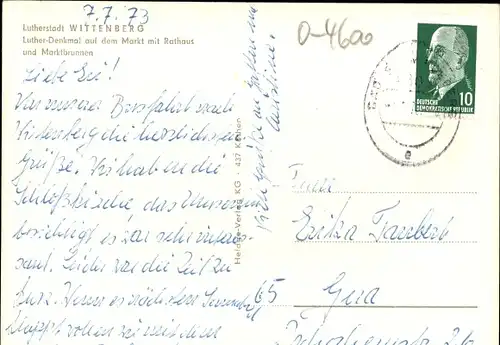 7.7.73
Lutherstadt WITTENBERG
Luther-Denkmal auf dem Markt mit Rathaus
und Marktbrunnen
Liebe Evi!
Von unserer Busfahrt nach
Wittenberg die herzlichsten
Grüße. Wir haben die
Schloßkirche, das Museum
besichtigt es war sehr interes-
sant. Leider war die Zeit zu
kurz. Wenn es nächsten Sonnabend
klappt wollen wir mit dem
Viele Grüße an
Heldge-Verlag KG · 437 Köthen
O-4600
DEUTSCHE
DEMOKRATISCHE REPUBLIK
10
Erika Taubert
65
Gera